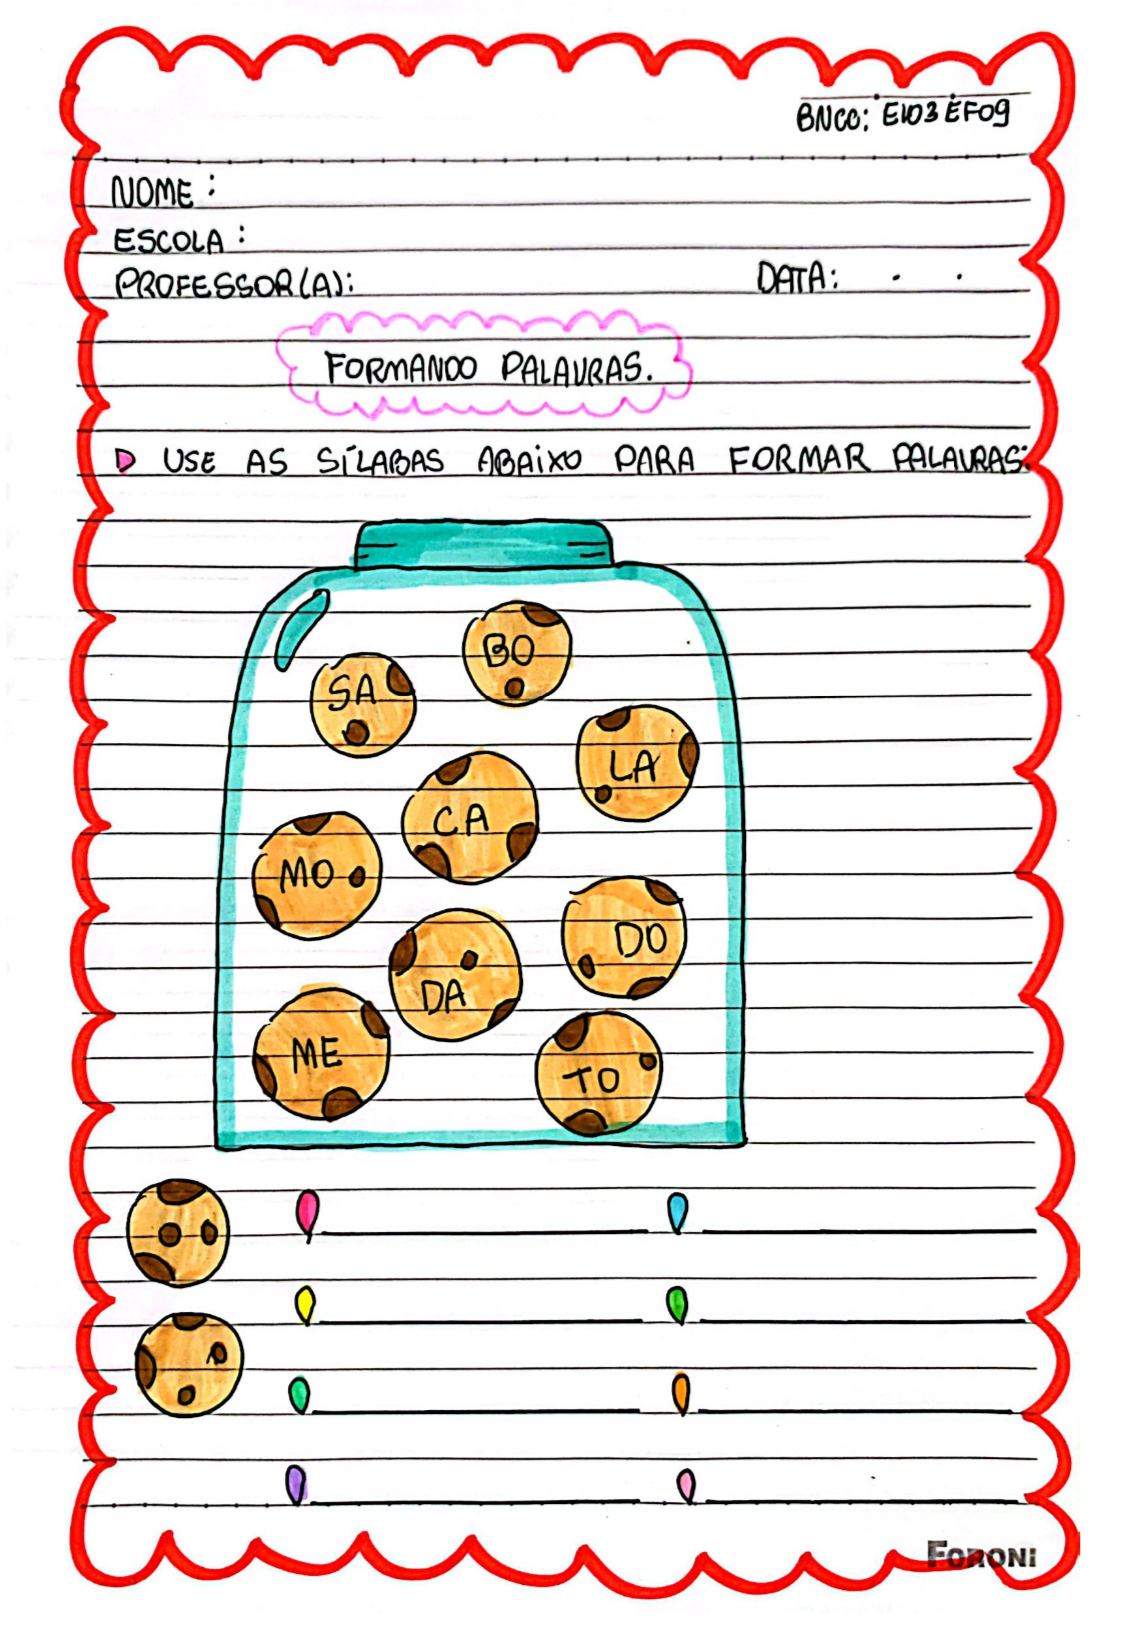 BNCC: EI03EF09
NOME:
ESCOLA:
PROFESSOR(A): DATA: . .
FORMANDO PALAVRAS.
USE AS SÍLABAS ABAIXO PARA FORMAR PALAVRAS:
BO
SA
LA
CA
MO
DO
DA
ME
TO
FORONI